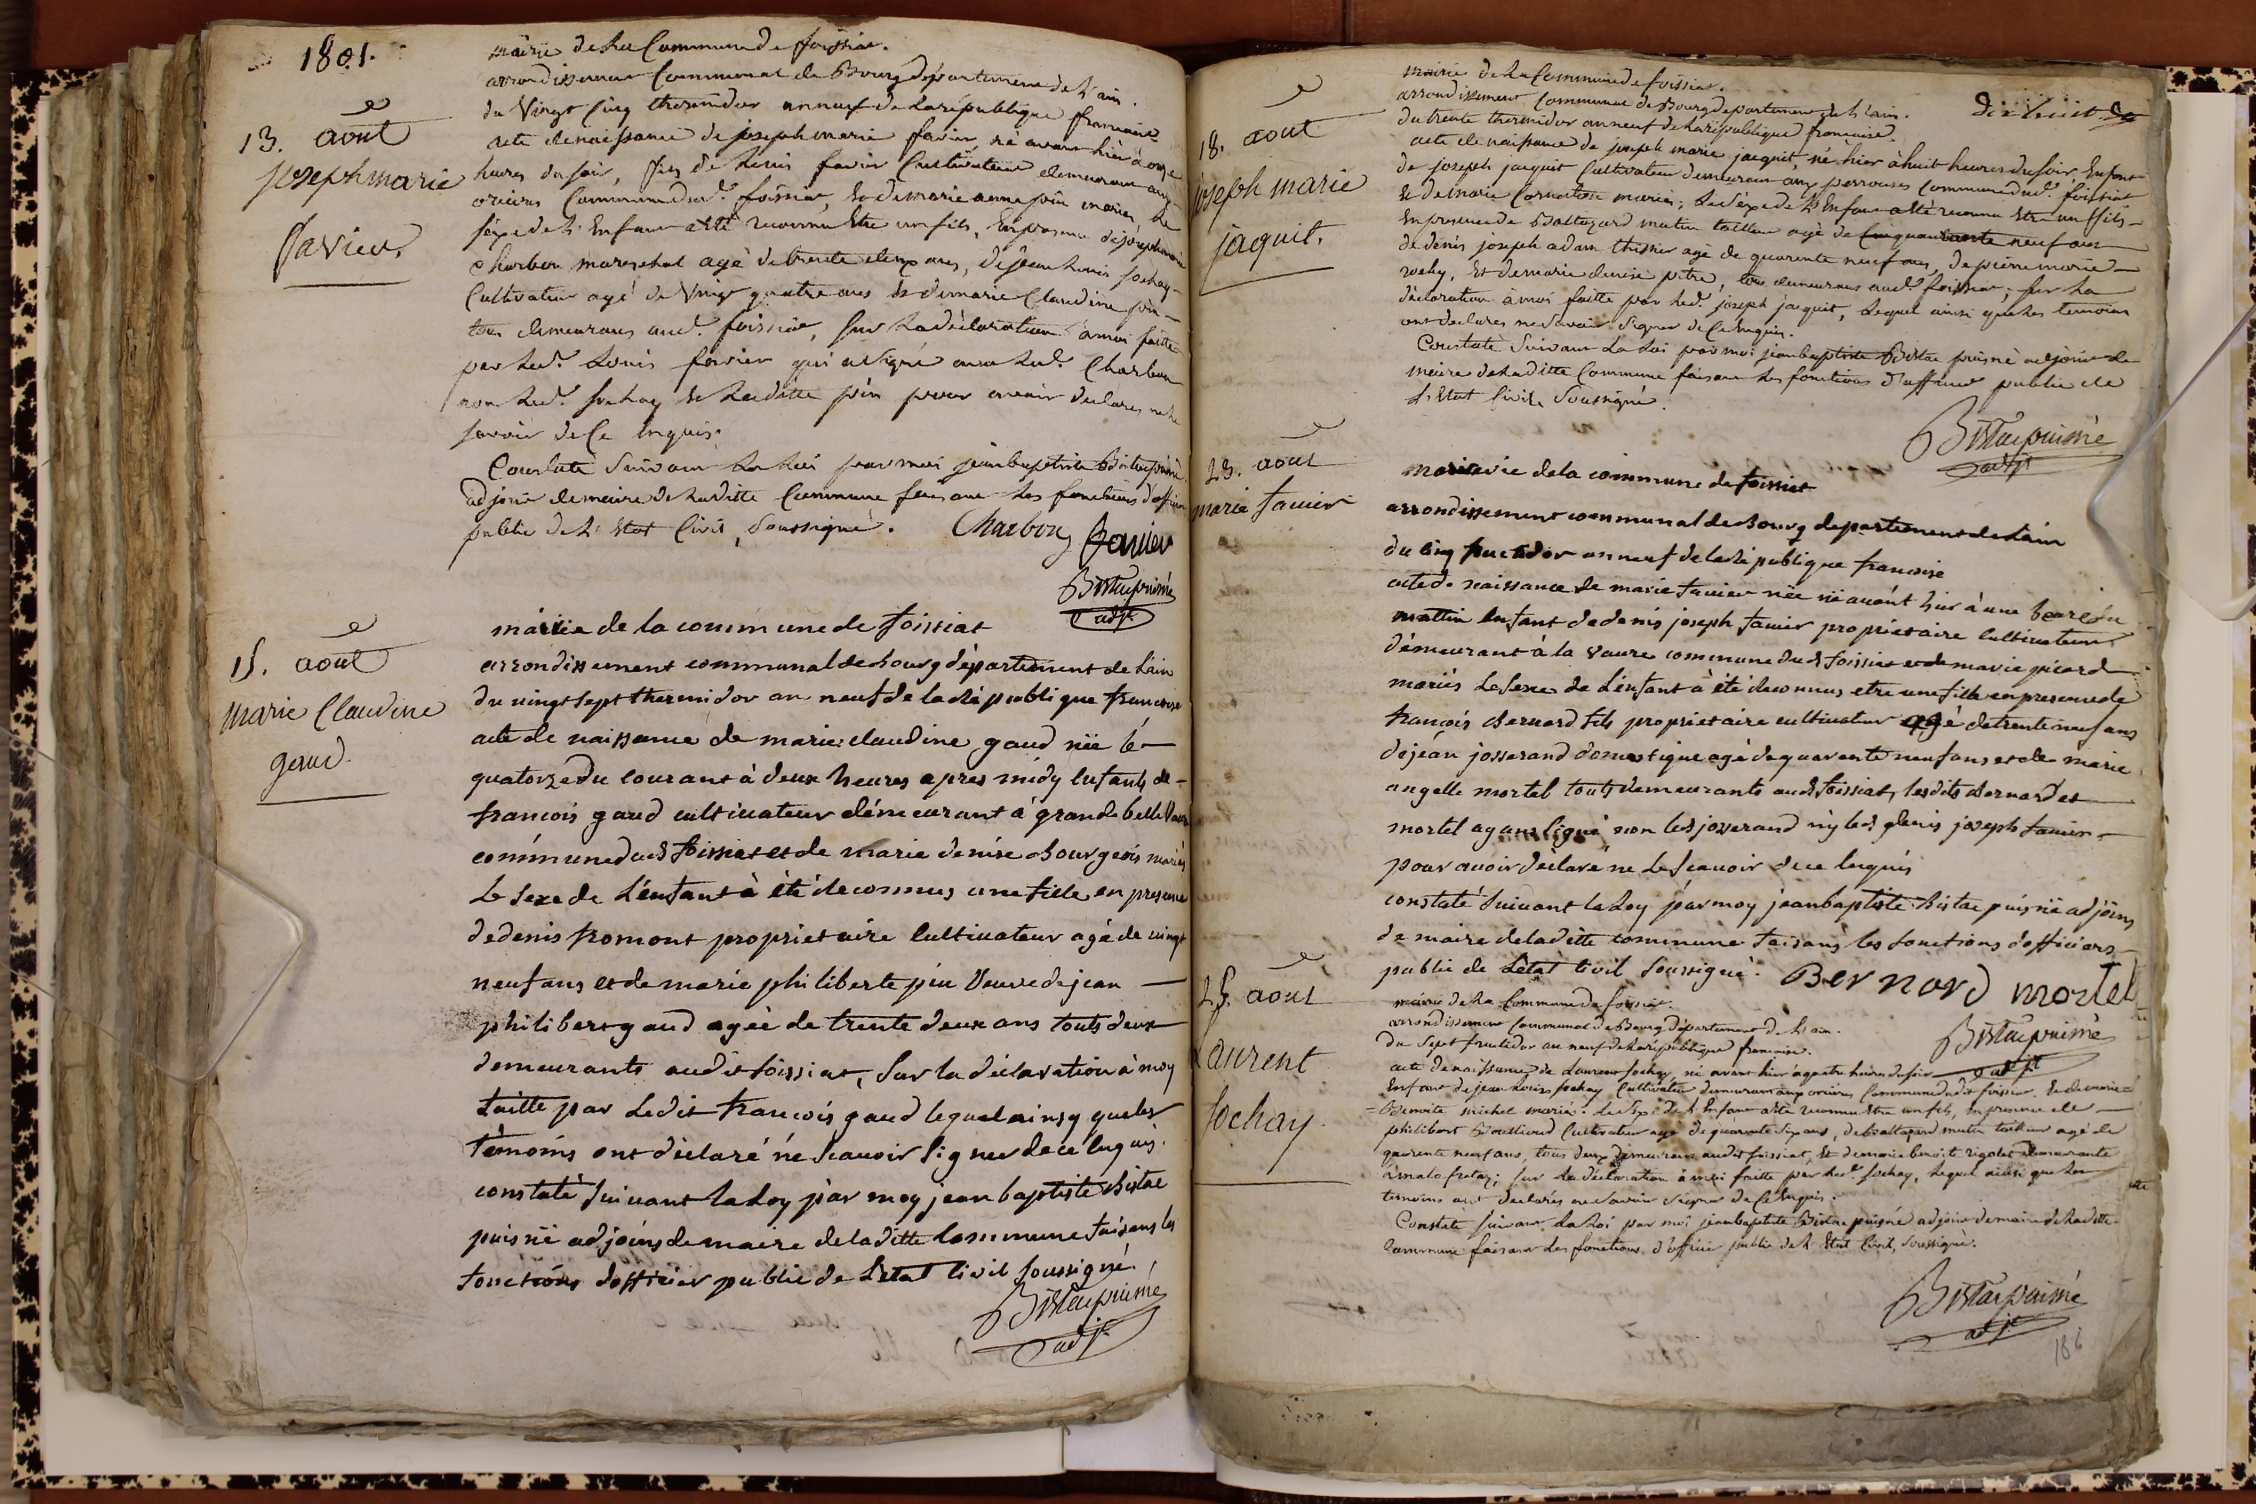 1801.
mairie de La Commune de foissiat.
arrondissement Communal de Bourg département de L'ain.
du Vingt Cinq thermidor an neuf de La république francaise
acte de naissance de joseph marie favier né avant hier à onze
heures du soir, fils de Louis favier Cultivateur demeurant aux
orcières Commune dud.t foissiat, Et de marie anne pin mariés, Le
séxe de L'Enfant a été reconnu Etre un fils, En présence de joseph marie
Charbon mareschal agé de trente deux ans, de jean Louis sochay
Cultivateur agé de Vingt quatre ans Et de marie Claudine pin
tous demeurans aud.t foissiat, sur La déclaration à moi faitte
par Led.t Louis favier qui a signé avec Led.t Charbon
non Led.t sochay Et Laditte pin pour avoir déclarés ne le
savoir de Ce Enquis.
Constaté Suivant La Loi par moi jean baptiste Bistac puisné
adjoint de maire de Laditte Commune faisant Les fonctions d'officier
public de L'Etat Civil, Soussigné. Charbon favier
Bistac puisné
adjt
13. aout
joseph marie
favier.
mairie de la commune de foissiat
arrondissement communal de bourg département de L'ain
du vingt sept thermidor an neuf de la république francoise
acte de naissance de marie claudine gaud née le
quatorze du courant à deux heures apres midy enfants de
francois gaud cultivateur démeurant à grande belle Vavre
commune dudt foissiat et de marie denise bourgeois mariés
Le sexe de L'enfant à été reconnus une fille en presence
de denis fromont proprietaire cultivateur agé de vingt
neuf ans et de marie philiberte pin veuve de jean
philibert gaud agée de trente deux ans touts deux
demeurants audit foissiat, sur la déclaration à moy
faitte par Ledit francois gaud lequel ainsy que les
témoins ont déclaré né scavoir signer de ce enquis.
constaté suivant la Loy par moy jean baptiste Bistac
puisné adjoins de maire de laditte commune faisans les
fonctions d'officier public de L'etat civil soussigné.
Bistac puisné
adjt
15. aout
marie Claudine
gaud.
dix huit
mairie de La Commune de foissiat.
arrondissement Communal de Bourg département de L'ain.
du trente thermidor an neuf de La république francaise.
acte de naissance de joseph marie jacquit, né hier à huit heures du soir Enfant
de joseph jacquit Cultivateur demeurant aux perrouses Commune dud.t foissiat
Et de marie Cornaton mariés; Le séxe de L'Enfant a été reconnu Etre un fils
En présence de Baltazard mutin tailleur agé de quarente neuf ans
de denis joseph adam thissier agé de quarente neuf ans, de pierre marie
rochy, Et de marie denise pitre, tous demeurans aud.t foissiat; sur La
déclaration à moi faitte par Led.t joseph jacquit, Lequel ainsi que Les temoins
ont déclarés ne Savoir Signer de Ce Enquis.
Constaté Suivant La Loi par moi jean baptiste Bistac puisné adjoint de
maire de Laditte Commune faisant Les fonctions d'officier public de
L'Etat Civil Soussigné.
Bistac puisné
adjt
18. aout
joseph marie
jaquit.
mairie de la commune de foissiat
arrondissement communal de bourg departement de Lain
du cinq fructidor an neuf de la république francoise
acte de naissance de marie favier née avant hier à une heure du
mattin enfant de denis joseph favier proprietaire cultivateur
démeurant à la vavre commune dudt foissiat et de marie picard
mariés Le sexe de L'enfant à été reconnus etre une fille en presence de
francois Bernard fils proprietaire cultivateur agé de trente neuf ans
de jean josserand domestique agé de quarente neuf ans et de marie
angelle mortel touts demeurants audt foissiat, lesdits Bernard et
mortel ayant signé non ledt josserand ny ledt denis joseph favier
pour avoir déclaré ne Le scavoir de ce enquis
constaté suivant la Loy par moy jean baptiste Bistac puisné adjoins
de maire de laditte commune faisans les fonctions d'officiers
public de L'etat civil soussigné. Bernard mortel
Bistac puisné
adjt
23. aout
marie favier
mairie de La Commune de foissiat.
arrondissement Communal de Bourg département de L'ain.
du Sept fructidor an neuf de La république francaise.
acte de naissance de Laurent sochay, né avant hier à quatre heures du soir
Enfant de jean Louis sochay Cultivateur demeurant aux orcières Commune dudit foissiat, Et de marie
Benoite michel mariés. Le Séxe de L'Enfant a été reconnu Etre un fils, En présence de
philibert Cultivateur agé de quarente Six ans, de baltazard mutin tailleur agé de
quarente neuf ans, tous deux demeurans audit foissiat, Et de marie benoite rigolet demeurante
à malafretaz; sur La déclaration à moi faitte par Led.t sochay, Lequel ainsi que Les
temoins ont déclarés ne Savoir Signer de Ce Enquis.
Constaté Suivant La Loi par moi jean baptiste Bistac puisné adjoint de maire de Laditte
Commune faisant Les fonctions d'officier public de L'Etat Civil, Soussigné.
Bistac puisné
adjt
25. aout
Laurent
sochay
186